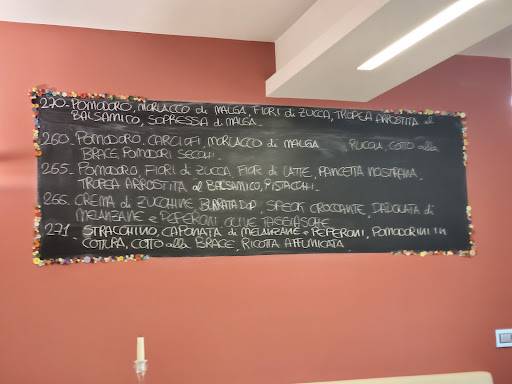 270. POMODORO, MORLACCO di MALGA, FIORI di ZUCCA, TROPEA ARROSTITA al
BALSAMICO, SOPRESSA di MALGA.
260. POMODORO, CARCIOFI, MORLACCO di MALGA, RUCOLA, COTTO alla
BRACE, POMODORI SECCHI.
265. POMODORO, FIORI di ZUCCA, FIOR di LATTE, PANCETTA NOSTRANA,
TROPEA ARROSTITA al BALSAMICO, PISTACCHI.
266. CREMA di ZUCCHINE, BURRATA DOP, SPECK CROCCANTE, DADOLATA di
MELANZANE e PEPERONI, OLIVE TAGGIASCHE
271. STRACCHINO, CAPONATA di MELANZANE e PEPERONI, POMODORINI IN
COTTURA, COTTO alla BRACE, RICOTTA AFFUMICATA